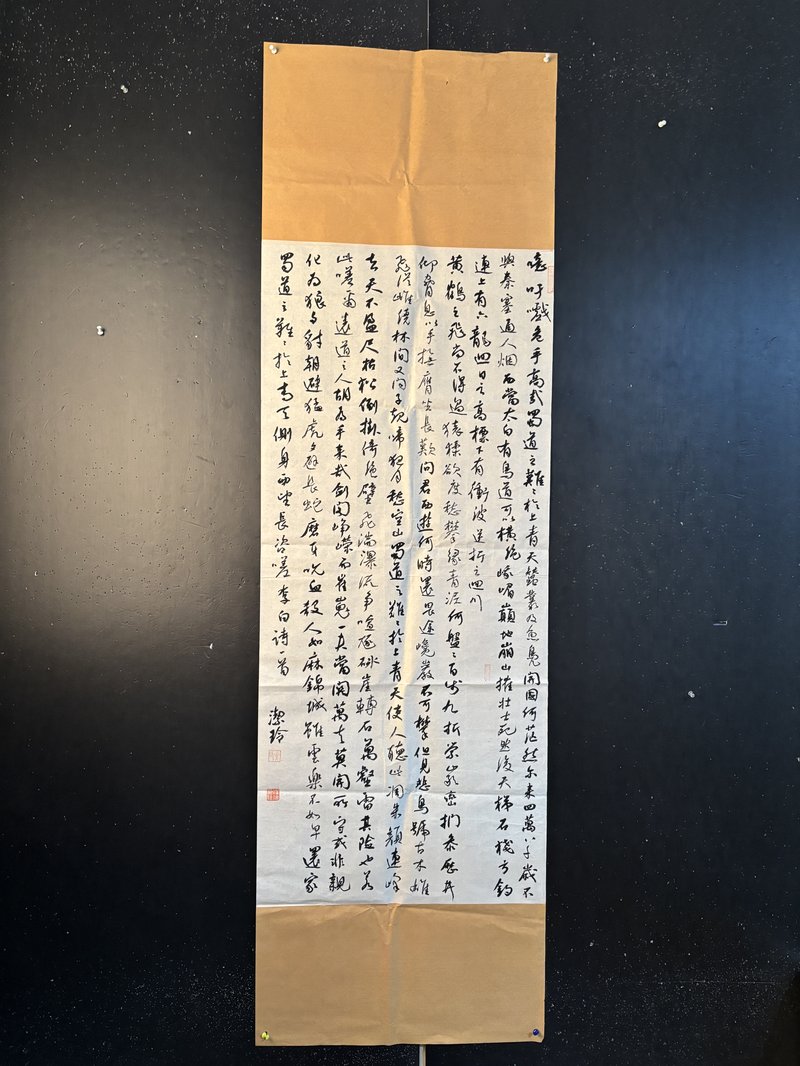 噫吁戲危乎高哉蜀道之難〻於上青天蠶叢及魚鳧開國何茫然尔来四萬八千歲不
與秦塞通人烟西當太白有鳥道可以橫絕峨嵋巔地崩山摧壯士死然後天梯石棧方鉤
連上有六龍回日之高標下有衝波逆折之回川
黃鶴之飛尚不得過猿猱欲度愁攀緣青泥何盤〻百步九折縈巒捫參歷井
仰脅息以手撫膺坐長歎問君西遊何時還畏途巉巖不可攀但見悲鳥號古木雄
飛從雌繞林間又聞子規啼夜月愁空山蜀道之難〻於上青天使人聽此凋朱顏連峰
去天不盈尺枯松倒掛倚絕壁飛湍瀑流爭喧豗砯崖轉石萬壑雷其險也若
此嗟爾遠道之人胡為乎来哉劍閣崢嶸而崔嵬一夫當關萬夫莫開所守或非親
化為狼与豺朝避猛虎夕避長蛇磨牙吮血殺人如麻錦城雖雲樂不如早還家
蜀道之難〻於上青天側身西望長咨嗟李白詩一首
潔玲